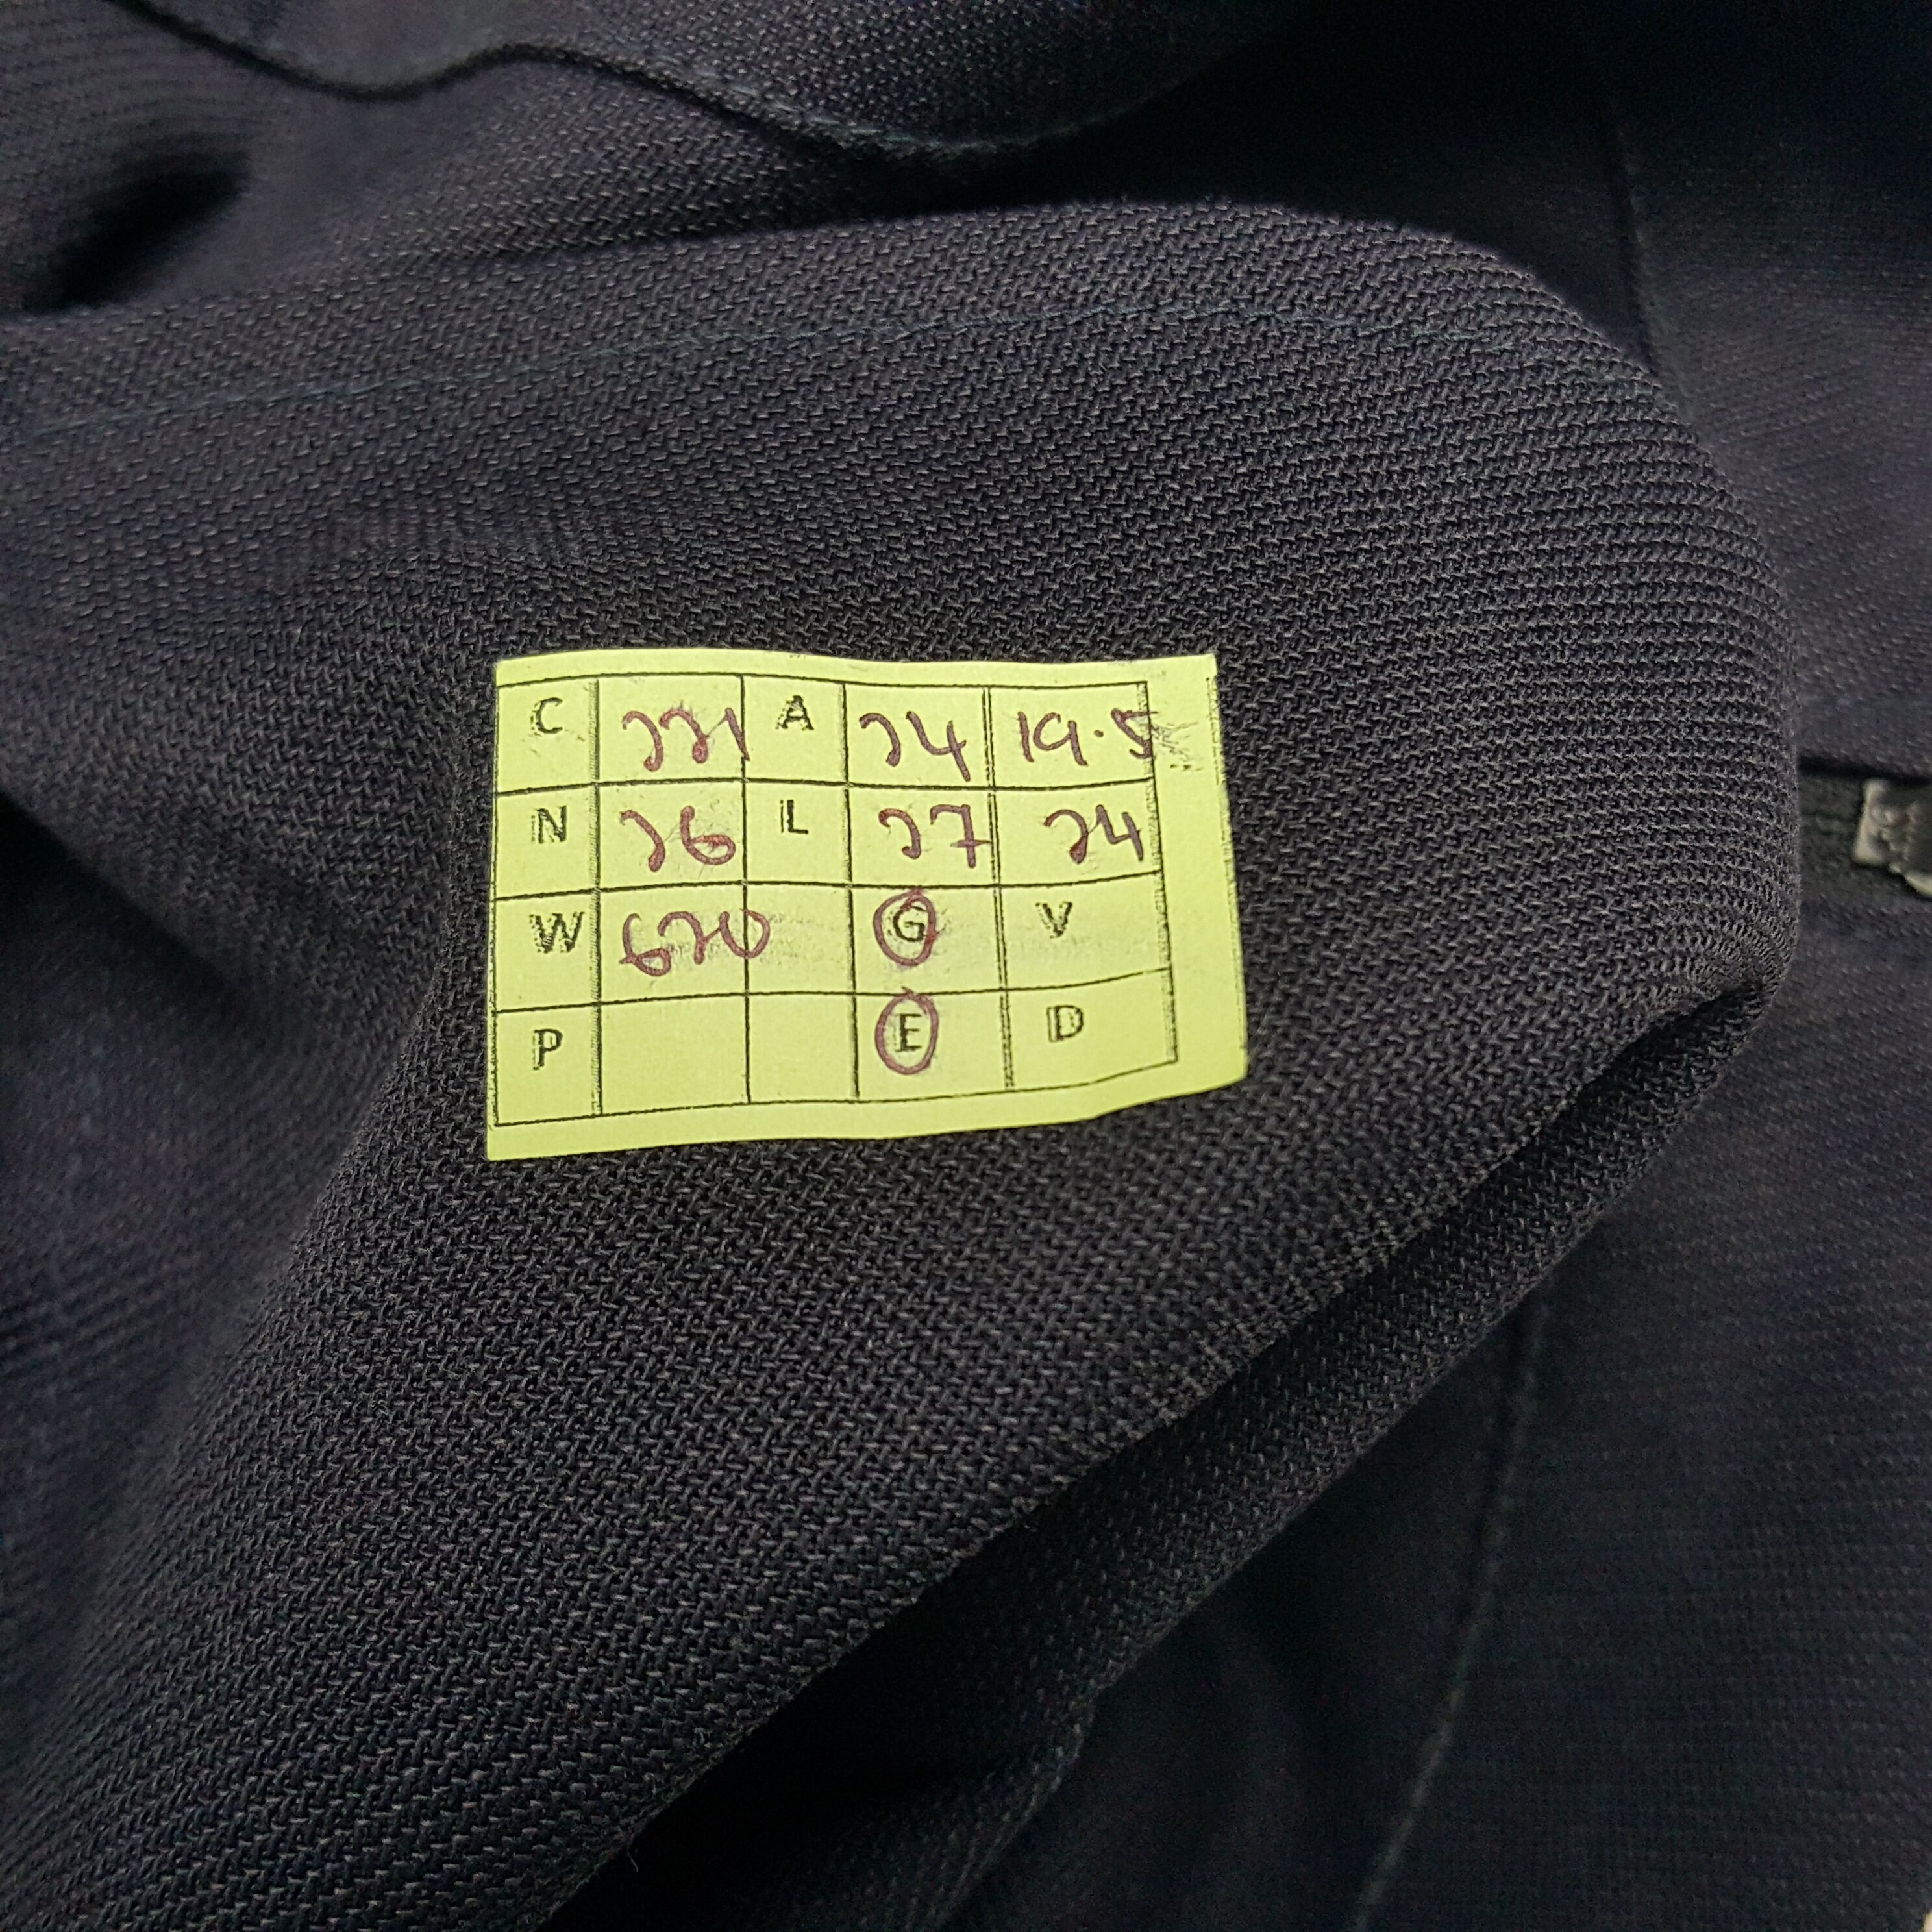 C 221 A 24 19.5
N 26 L 27 24
W 620 G V
P E D